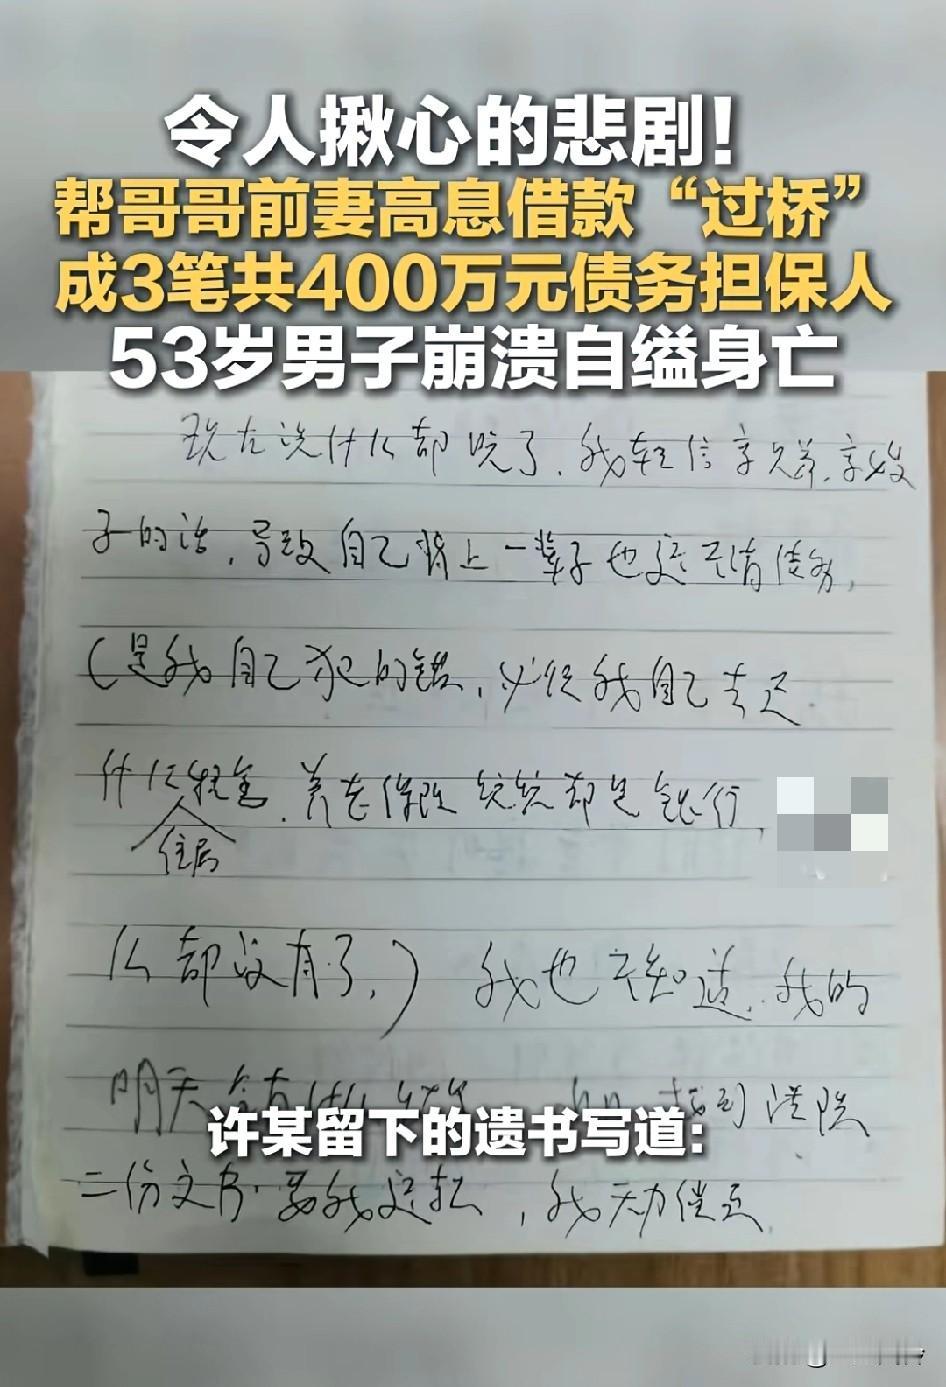 令人揪心的悲剧!
帮哥哥前妻高息借款“过桥”
成3笔共400万元债务担保人
53岁男子崩溃自缢身亡
现在说什么都晚了,我轻信亲兄弟,亲嫂
子的话,导致自己背上一辈子也还不清债务,
(是我自己犯的错,必须我自己去还
什么租金,养老保险统统都是银行,
住房
么都没有了,)我也不知道,我的
明天会有什么 法院
许某留下的遗书写道:
二份文书,要我还款,我无力偿还